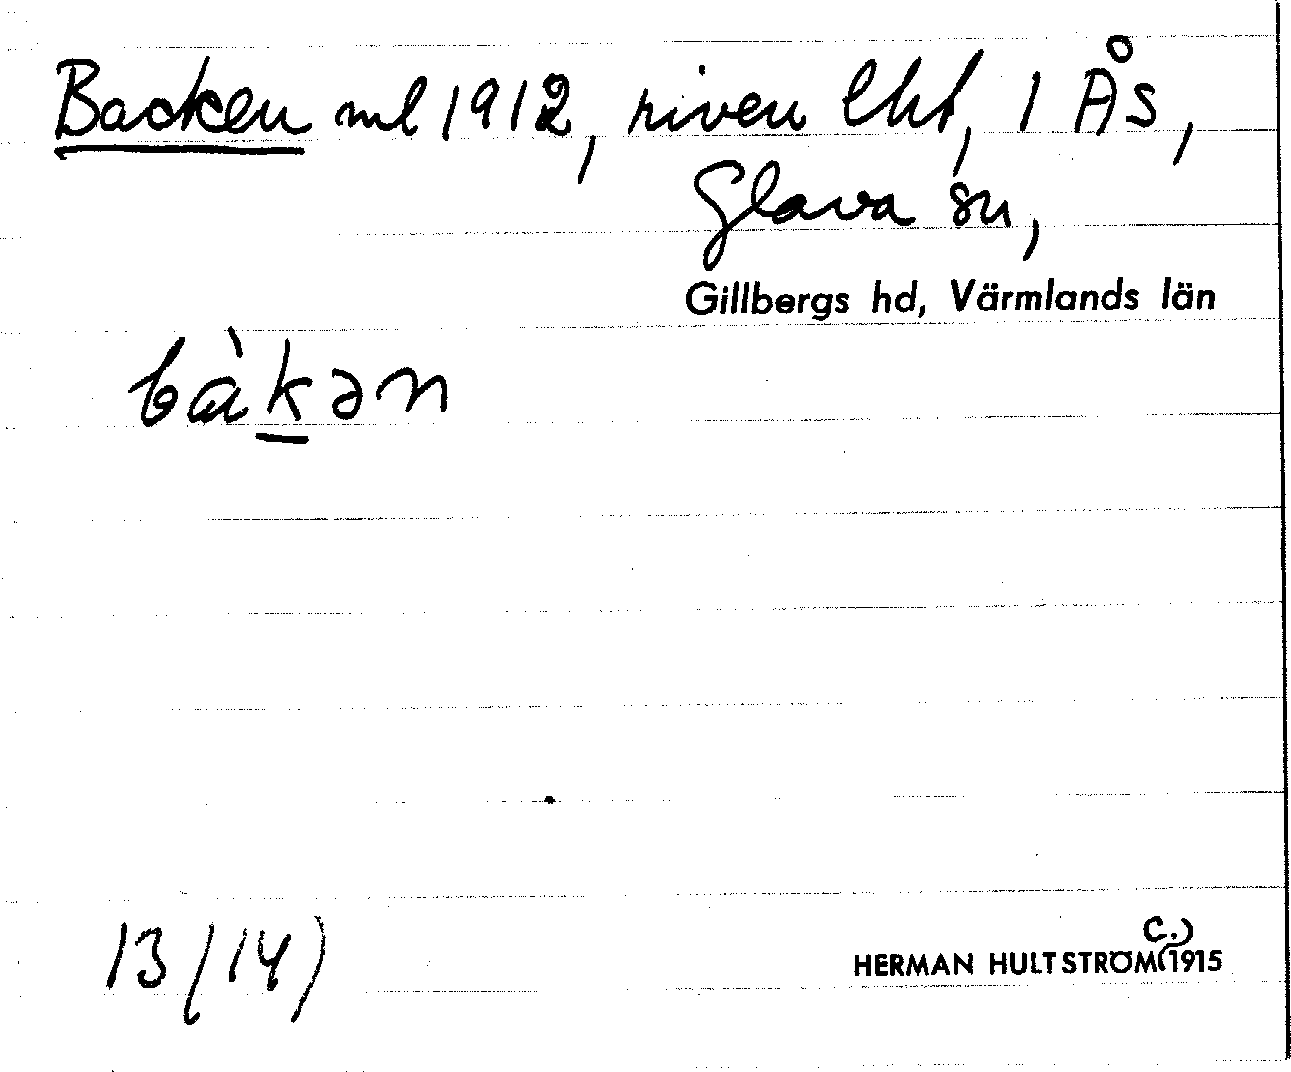 Backen ml 1912, riven lht, 1 Ås,
Glava sn,
Gillbergs hd, Värmlands län
bàkən
13(14)
HERMAN HULTSTRÖM (c.) 1915